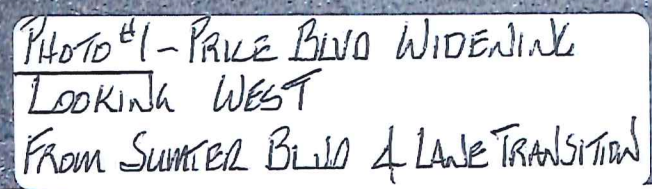 PHOTO #1 - PRICE BLVD WIDENING
LOOKING WEST
FROM SUMTER BLVD 4 LANE TRANSITION